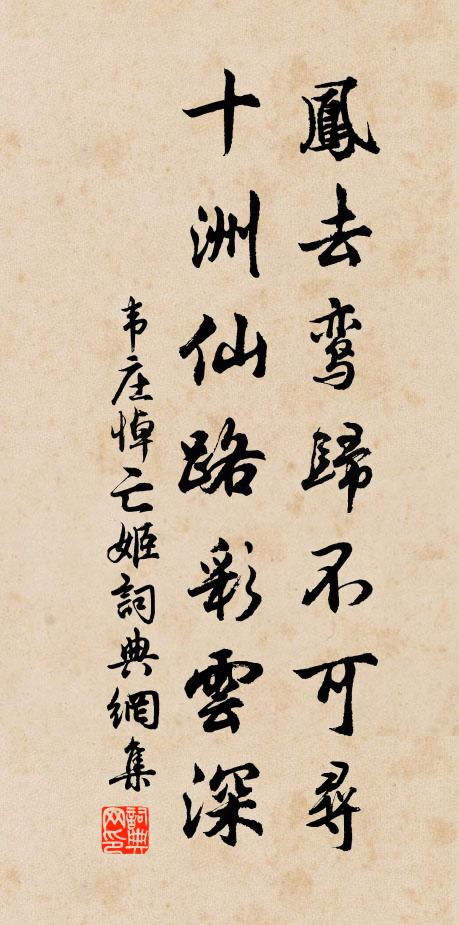 鳳去鸾歸不可尋
十洲仙路彩雲深
韦庄悼亡姬詞典網集
詞典网印